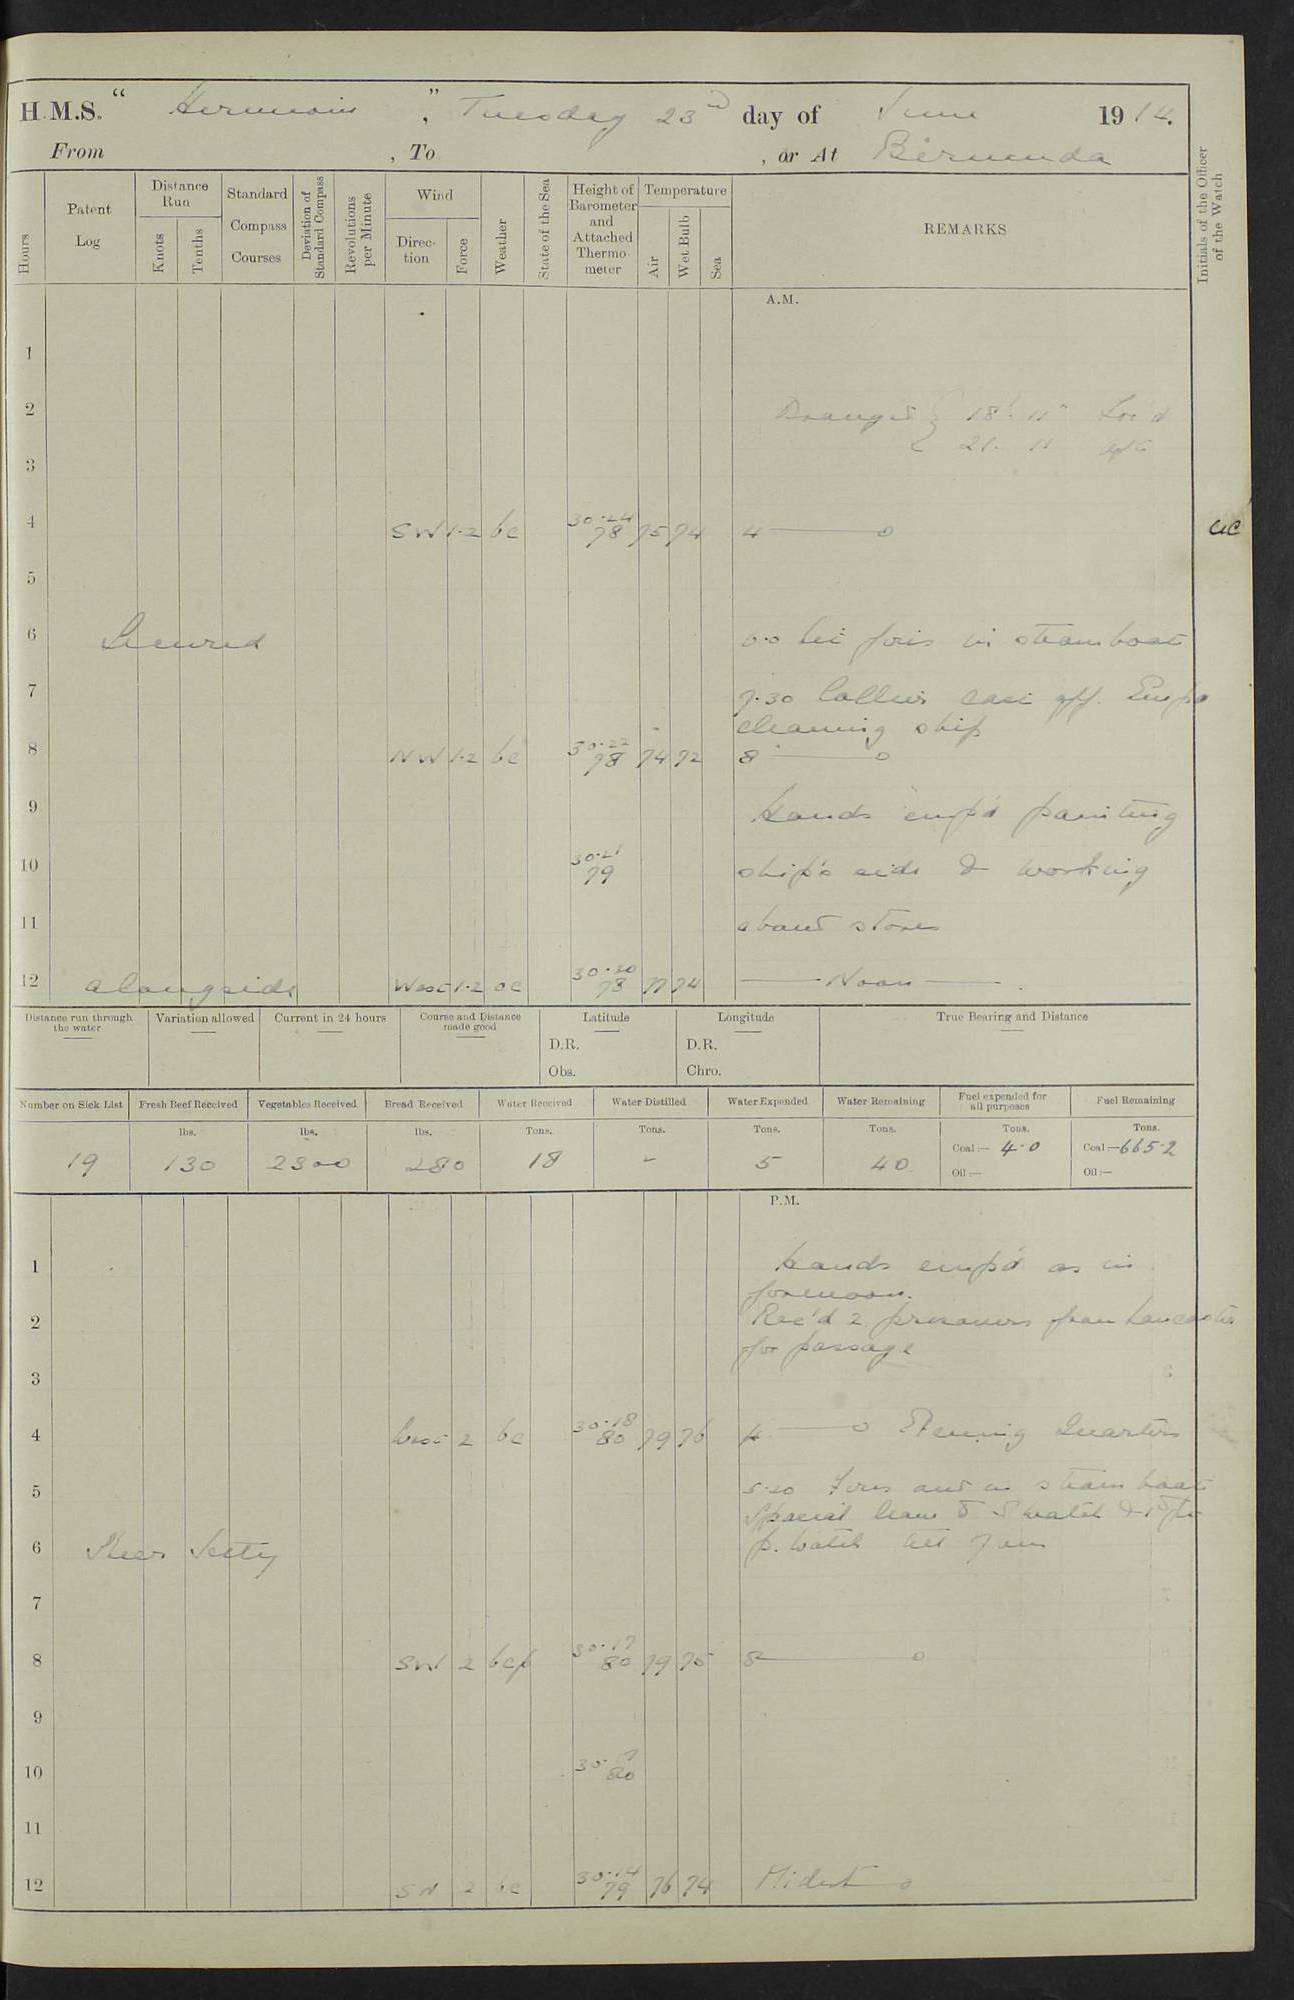 H.M.S. " Hermione ", Tuesday 23rd day of June 1914.
From , To , or At Bermuda
Hours
Patent Log
Distance Run
Knots
Tenths
Standard Compass Courses
Deviation of Standard Compass
Revolutions per Minute
Wind
Direction
Force
Weather
State of the Sea
Height of Barometer and Attached Thermometer
Temperature
Air
Wet Bulb
Sea
REMARKS
Initials of the Officer of the Watch
A.M.
1
2 Draught { 18' 11" For'd
3 { 21 11 aft
4 SW 1·2 bc 30·24 78 75 74 4 ——o
5
6 Secured 6·0 in steamboat
7 7·30 Collier cast off. Emp'd
cleaning ship
8 NW 1·2 bc 30·22 78 74 72 8 ——o
9 Hands emp'd painting
10 30·21 79 ship's side & working
11 about stores
12 alongside West 1·2 bc 30·20 78 77 74 —— Noon ——
Distance run through the water
Variation allowed
Current in 24 hours
Course and Distance made good
Latitude
D.R.
Obs.
Longitude
D.R.
Chro.
True Bearing and Distance
Number on Sick List
Fresh Beef Received
Vegetables Received
Bread Received
Water Received
Water Distilled
Water Expended
Water Remaining
Fuel expended for all purposes
Fuel Remaining
lbs. lbs. lbs. Tons. Tons. Tons. Tons. Tons. Tons.
19 130 2300 280 18 - 5 40 Coal:— 4·0 Coal:—665·2
Oil:— Oil:—
P.M.
1 Hands emp'd as in
forenoon.
2 Rec'd 2 prisoners from Lancaster
for passage
3
4 West 2 bc 30·18 80 79 76 4 ——o Evening Quarters
5 5·20 in steam boat
Special leave to watch &
6 Sheer Jetty p. watch till 7 am
7
8 SW 2 bcp 30·17 80 79 75 8 ——o
9
10 30·17 80
11
12 SW 2 bc 30·14 79 76 74 Midnt ——o